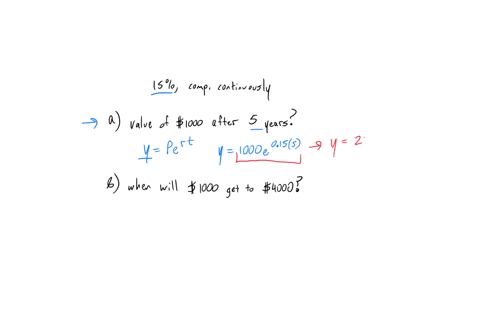 15%, comp. continuously
→ a) value of $1000 after 5 years?
y = Pe^rt y = 1000e^0.15(5) → y = 2
b) when will $1000 get to $4000?